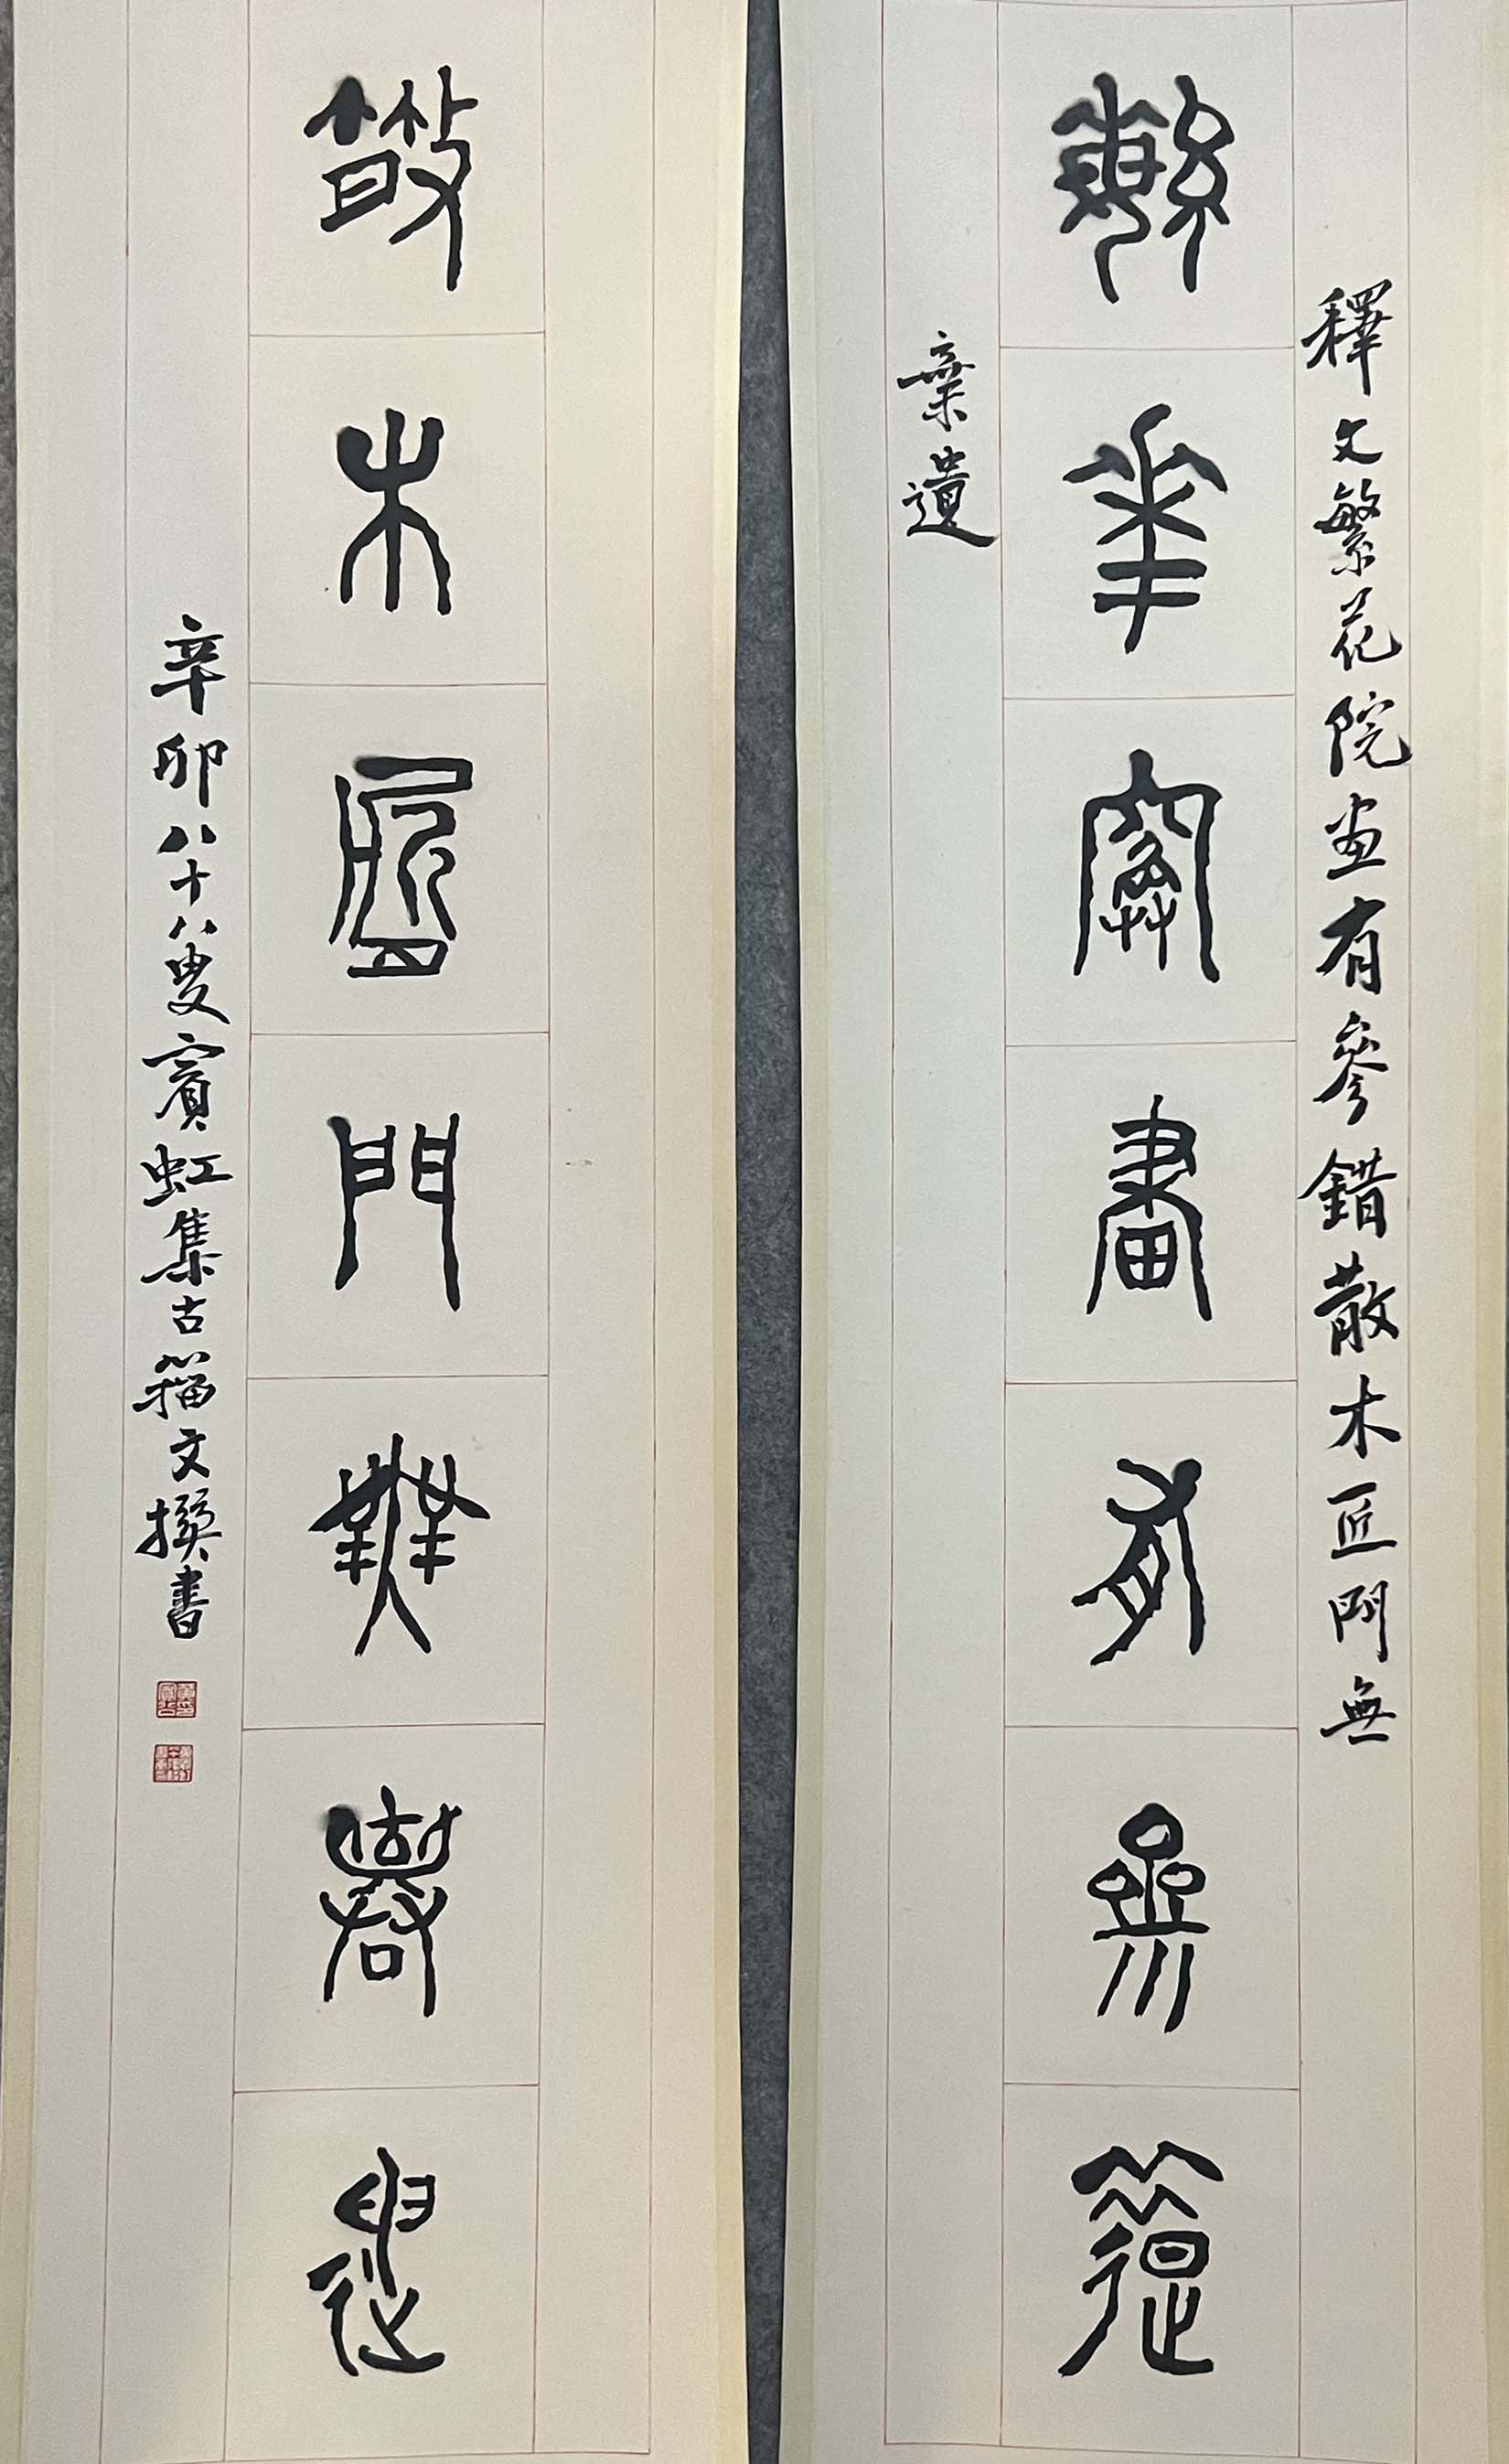 釋文繁花院画有參錯散木匠門無
繁華院畫有參錯
棄遺
散木匠門無棄遺
辛卯八十八叟賓虹集古籀文撰書